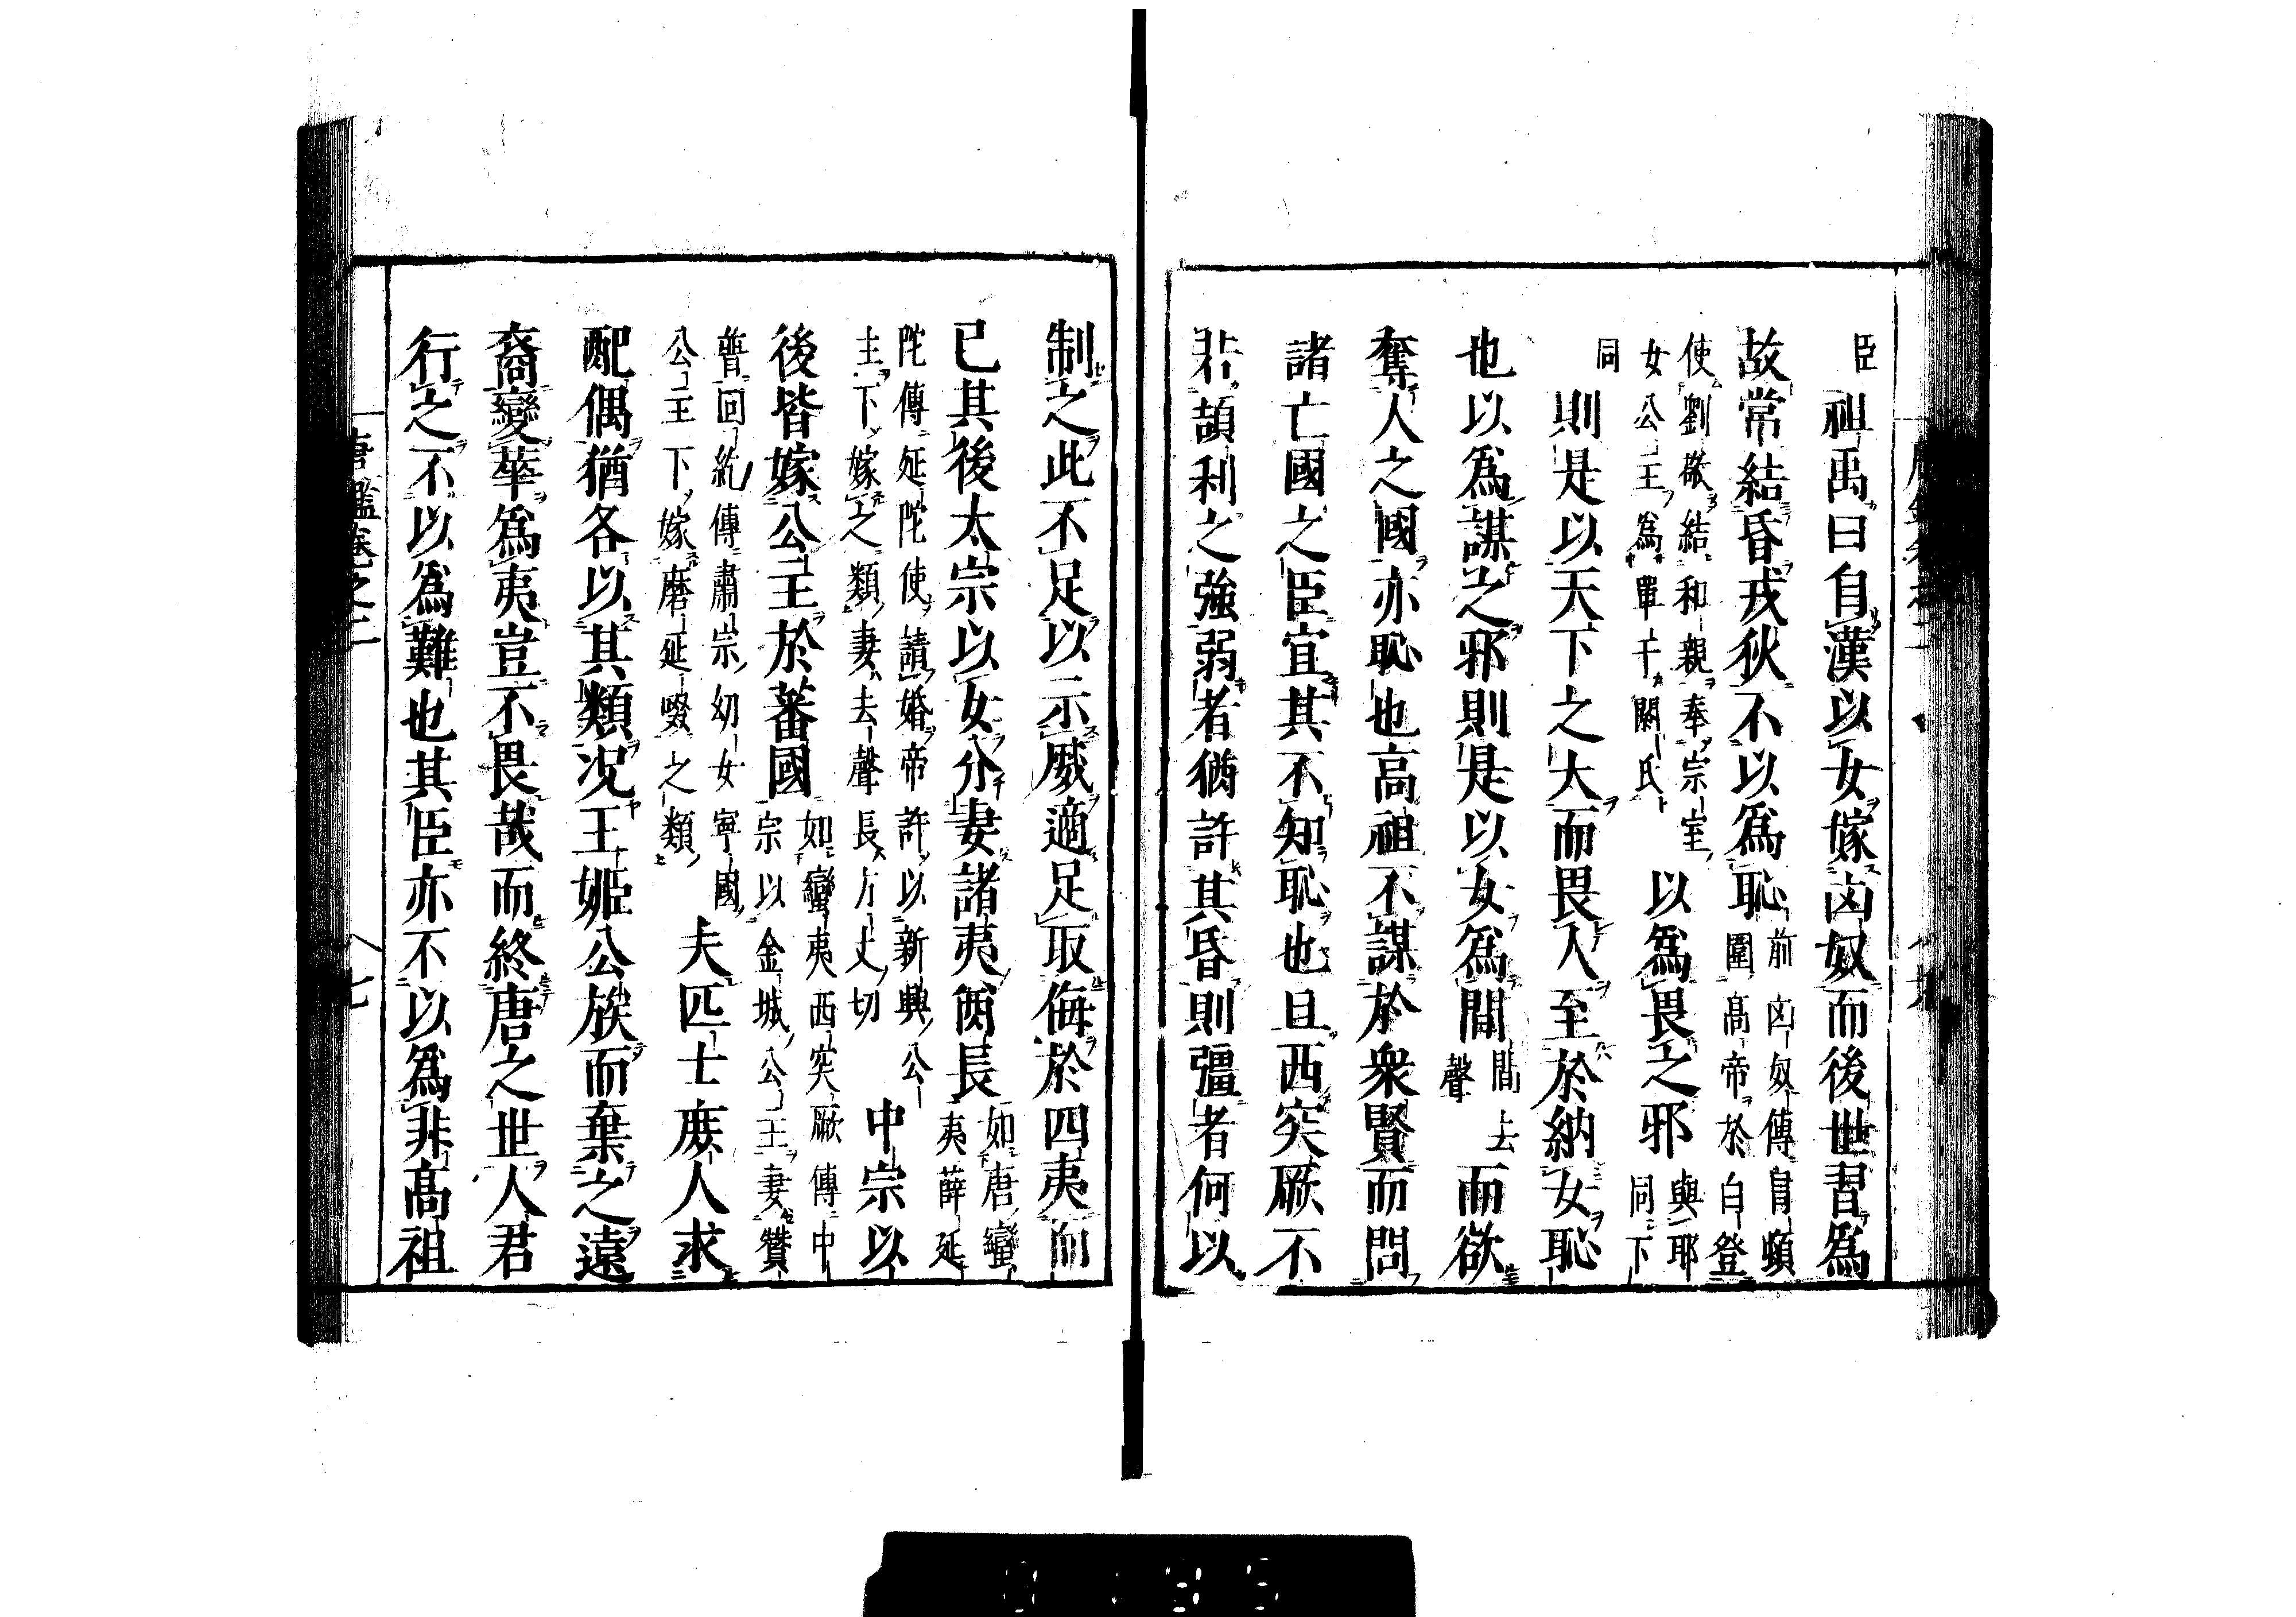 臣祖禹曰自漢以女嫁凶奴而後世習爲
故常結昏戎狄不以爲恥前凶奴傳冐頓圍高帝於白登
使劉敬結和親奉宗室女公主爲單于閼氏以爲畏之邪與耶同下
同則是以天下之大而畏人至於納女恥
也以爲謀之邪則是以女爲間間去聲而欲
奪人之國亦恥也高祖不謀於衆賢而問
諸亡國之臣宜其不知恥也且西突厥不
若頡利之強弱者猶許其昏則彊者何以
制之此不足以示威適足取侮於四夷而
已其後太宗以女分妻諸夷酋長如唐蠻夷薛延
陀傳延陀使請婚帝許以新興公主下嫁之類妻去聲長丁丈切中宗以
後皆嫁公主於蕃國如蠻夷西突厥傳中宗以金城公主妻贊
普回紇傳肅宗幼女寧國公主下嫁磨延啜之類夫匹士庶人求
配偶猶各以其類况王姬公族而棄之遠
裔變華爲夷豈不畏哉而終唐之世人君
行之不以爲難也其臣亦不以爲非高祖
唐鑑卷之二
七